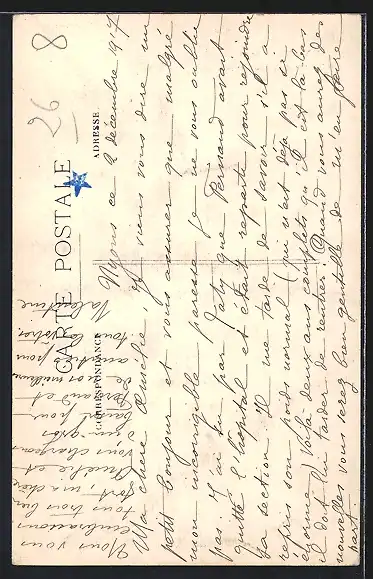 26
8
CARTE POSTALE
CORRESPONDANCE
ADRESSE
Nyons ce 2 décembre 1917
Ma chère Amélie, je viens vous dire un
petit bonjour et vous assurer que malgré
mon incorrigible paresse je ne vous oublie
pas. J'ai su par Gaby que Fernand avait
quitté l'hôpital et était reparti pour rejoindre
sa section. Il me tarde de savoir s'il a
repris son poids normal (qui n'est déjà pas si
énorme) Voilà deux ans complets qu'il est là bas
il doit lui tarder de rentrer. Quand vous aurez des
nouvelles vous serez bien gentille de m'en faire
part.
Nous vous
embrassons
tous trois bien
fort, ma chère
Amélie et
vous chargeons
d'un gros
baiser pour
Fernand et
de nos meilleures
amitiés pour
tous les vôtres.
Valentine